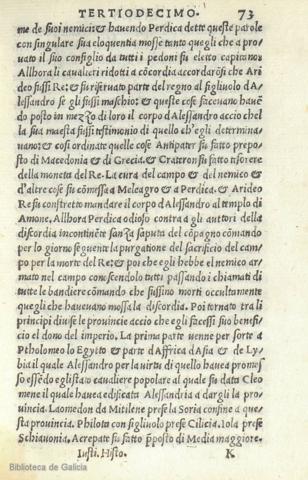 TERTIODECIMO. 73
me de suoi nemici: & hauendo Perdica dette queste parole
con singulare sua eloquentia mosse tanto quegli che a pro,
uato il suo consiglio da tutti i pedoni fu eletto capitano:
Allhora li caualieri ridotti a cõcordia accordarõsi che Ari
deo fussi Re: & fu riseruato parte del regno al figliuolo d'A
lessandro se gli fussi maschio: & queste cose faceuano hauẽ
do posto in mezzo di loro il corpo d'Alessandro accio che
la sua maestà fussi testimonio di quello ch'egli determina,
uano: & cosi ordinate quelle cose Antipater fu fatto prepo,
sto di Macedonia & di Grecia. & Crateron fu fatto tesorere
della moneta del Re. La cura del campo & del nemico &
d'altre cose fu cõmessa a Meleagro & a Perdica. & Arideo
Re fu constretto mandare il corpo d'Alessandro al tempio di
Amone. Allhora Perdica odioso contra a gli autori della
discordia incontinẽte sanza saputa del cõpagno cõmando
per lo giorno seguente la purgatione del sacrificio del cam,
po per la morte del Re: & poi che egli hebbe el nemico ar,
mato nel campo conescendolo tutti passando i chiamati di
tutte le bandiere cõmando che fussino morti occultamente
quegli che haueuano mossa la discordia. Poi tornato tra li
principi diuise le prouincie accio che egli facessi suo benefi,
cio el dono del imperio. La prima parte venne per sorte a
Ptholomeo lo Egytto & parte d'Affrica d'Asia & de Ly,
bia il quale Alessandro per la virtu di quello haueua promes
so essẽdo egli stato caualiere popolare al quale fu data Cleo
mene il quale haueua edificata Alessandria a dargli la pro,
uincia. Laomedon da Mitilene prese la Soria confine a que,
sta prouincia. Philota con figliuolo prese Cilicia. Iola prese
Schiauonia. Acrepate fu fatto p̃posto di Media maggiore.
Iusti. Histo. K
Biblioteca de Galicia